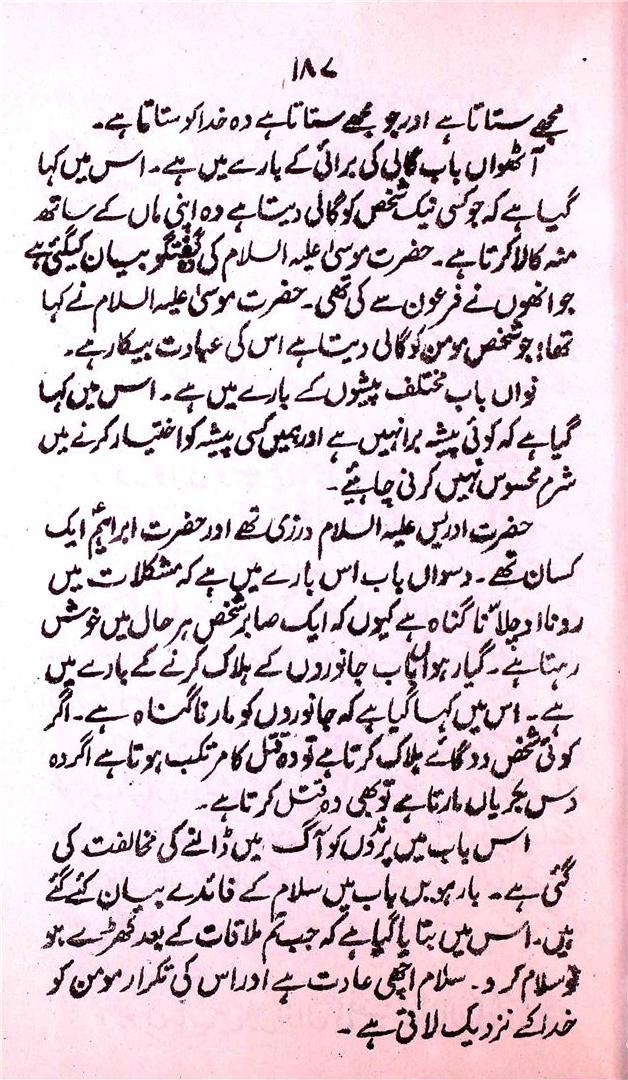 ۱۸۷
مجھے ستاتا ہے اور جو مجھے ستاتا ہے وہ خدا کو ستاتا ہے۔
آٹھواں باب گالی کی برائی کے بارے میں ہے۔ اس میں کہا
گیا ہے کہ جو کسی نیک شخص کو گالی دیتا ہے وہ اپنی ماں کے ساتھ
منہ کالا کرتا ہے۔ حضرت موسیٰ علیہ السلام کی وہ گفتگو بیان کیگئی ہے
جو انھوں نے فرعون سے کی تھی۔ حضرت موسیٰ علیہ السلام نے کہا
تھا؛ جو شخص مومن کو گالی دیتا ہے اس کی عبادت بیکار ہے۔
نواں باب مختلف پیشوں کے بارے میں ہے۔ اس میں کہا
گیا ہے کہ کوئی پیشہ برا نہیں ہے اور ہمیں کسی پیشہ کو اختیار کرنے میں
شرم محسوس نہیں کرنی چاہئیے۔
حضرت ادریس علیہ السلام درزی تھے اور حضرت ابراہیمؑ ایک
کسان تھے۔ دسواں باب اس بارے میں ہے کہ مشکلات میں
رونا اور چلّانا گناہ ہے کیوں کہ ایک صابر شخص ہر حال میں خوش
رہتا ہے۔ گیارہواں باب جانوروں کے ہلاک کرنے کے بارے میں
ہے۔ اس میں کہا گیا ہے کہ جانوروں کو مارنا گناہ ہے۔ اگر
کوئی شخص دو گائے ہلاک کرتا ہے تو وہ قتل کا مرتکب ہوتا ہے اگر وہ
دس بکریاں مارتا ہے تو بھی وہ قتل کرتا ہے۔
اس باب میں پرندوں کو آگ میں ڈالنے کی مخالفت کی
گئی ہے۔ بارہویں باب میں سلام کے فائدے بیان کئے گئے
ہیں۔ اس میں بتایا گیا ہے کہ جب تم ملاقات کے بعد کھڑے ہو
تو سلام کرو۔ سلام اچھی عادت ہے اور اس کی تکرار مومن کو
خدا کے نزدیک لاتی ہے۔